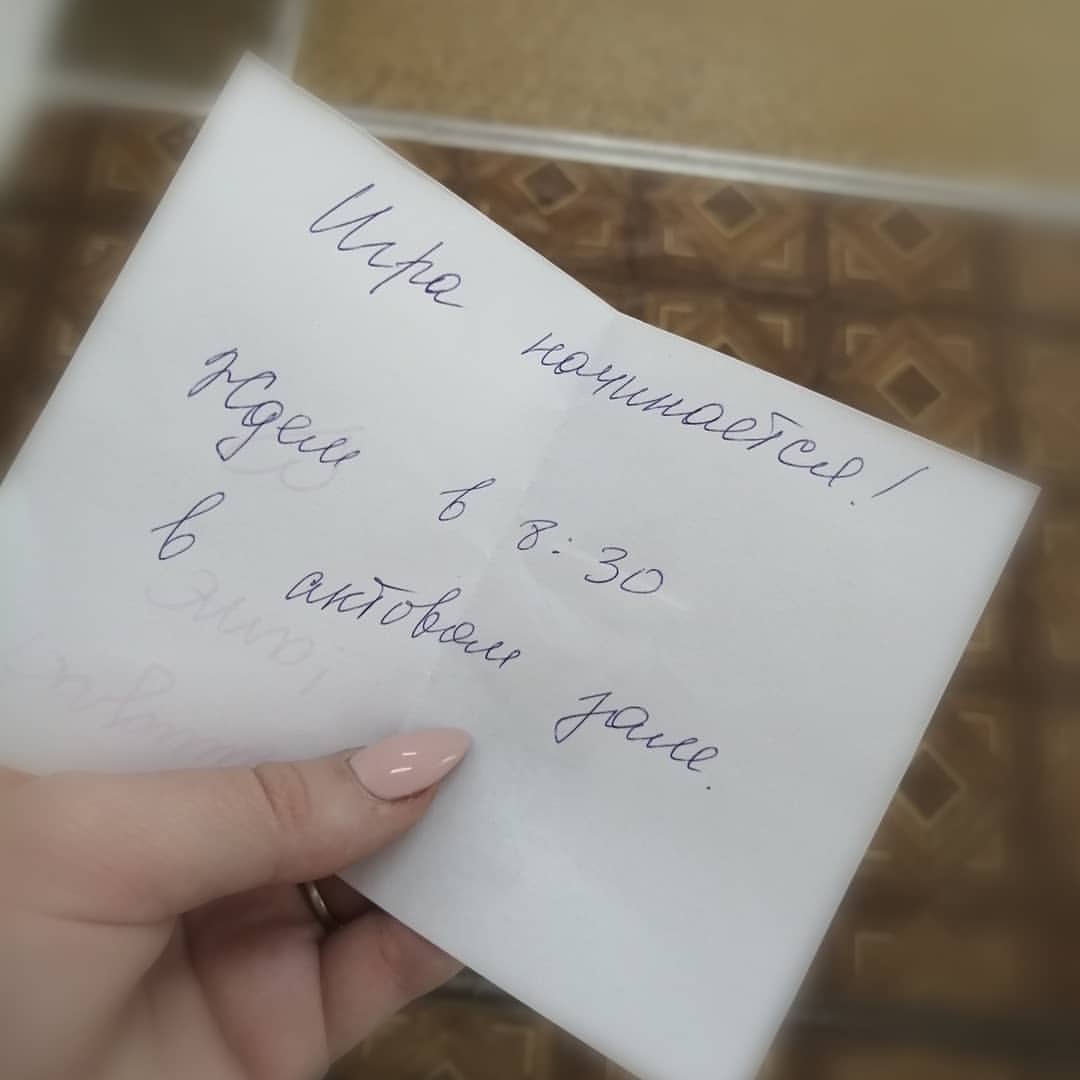 Игра начинается!
Ждем в 8:30
в актовом зале.